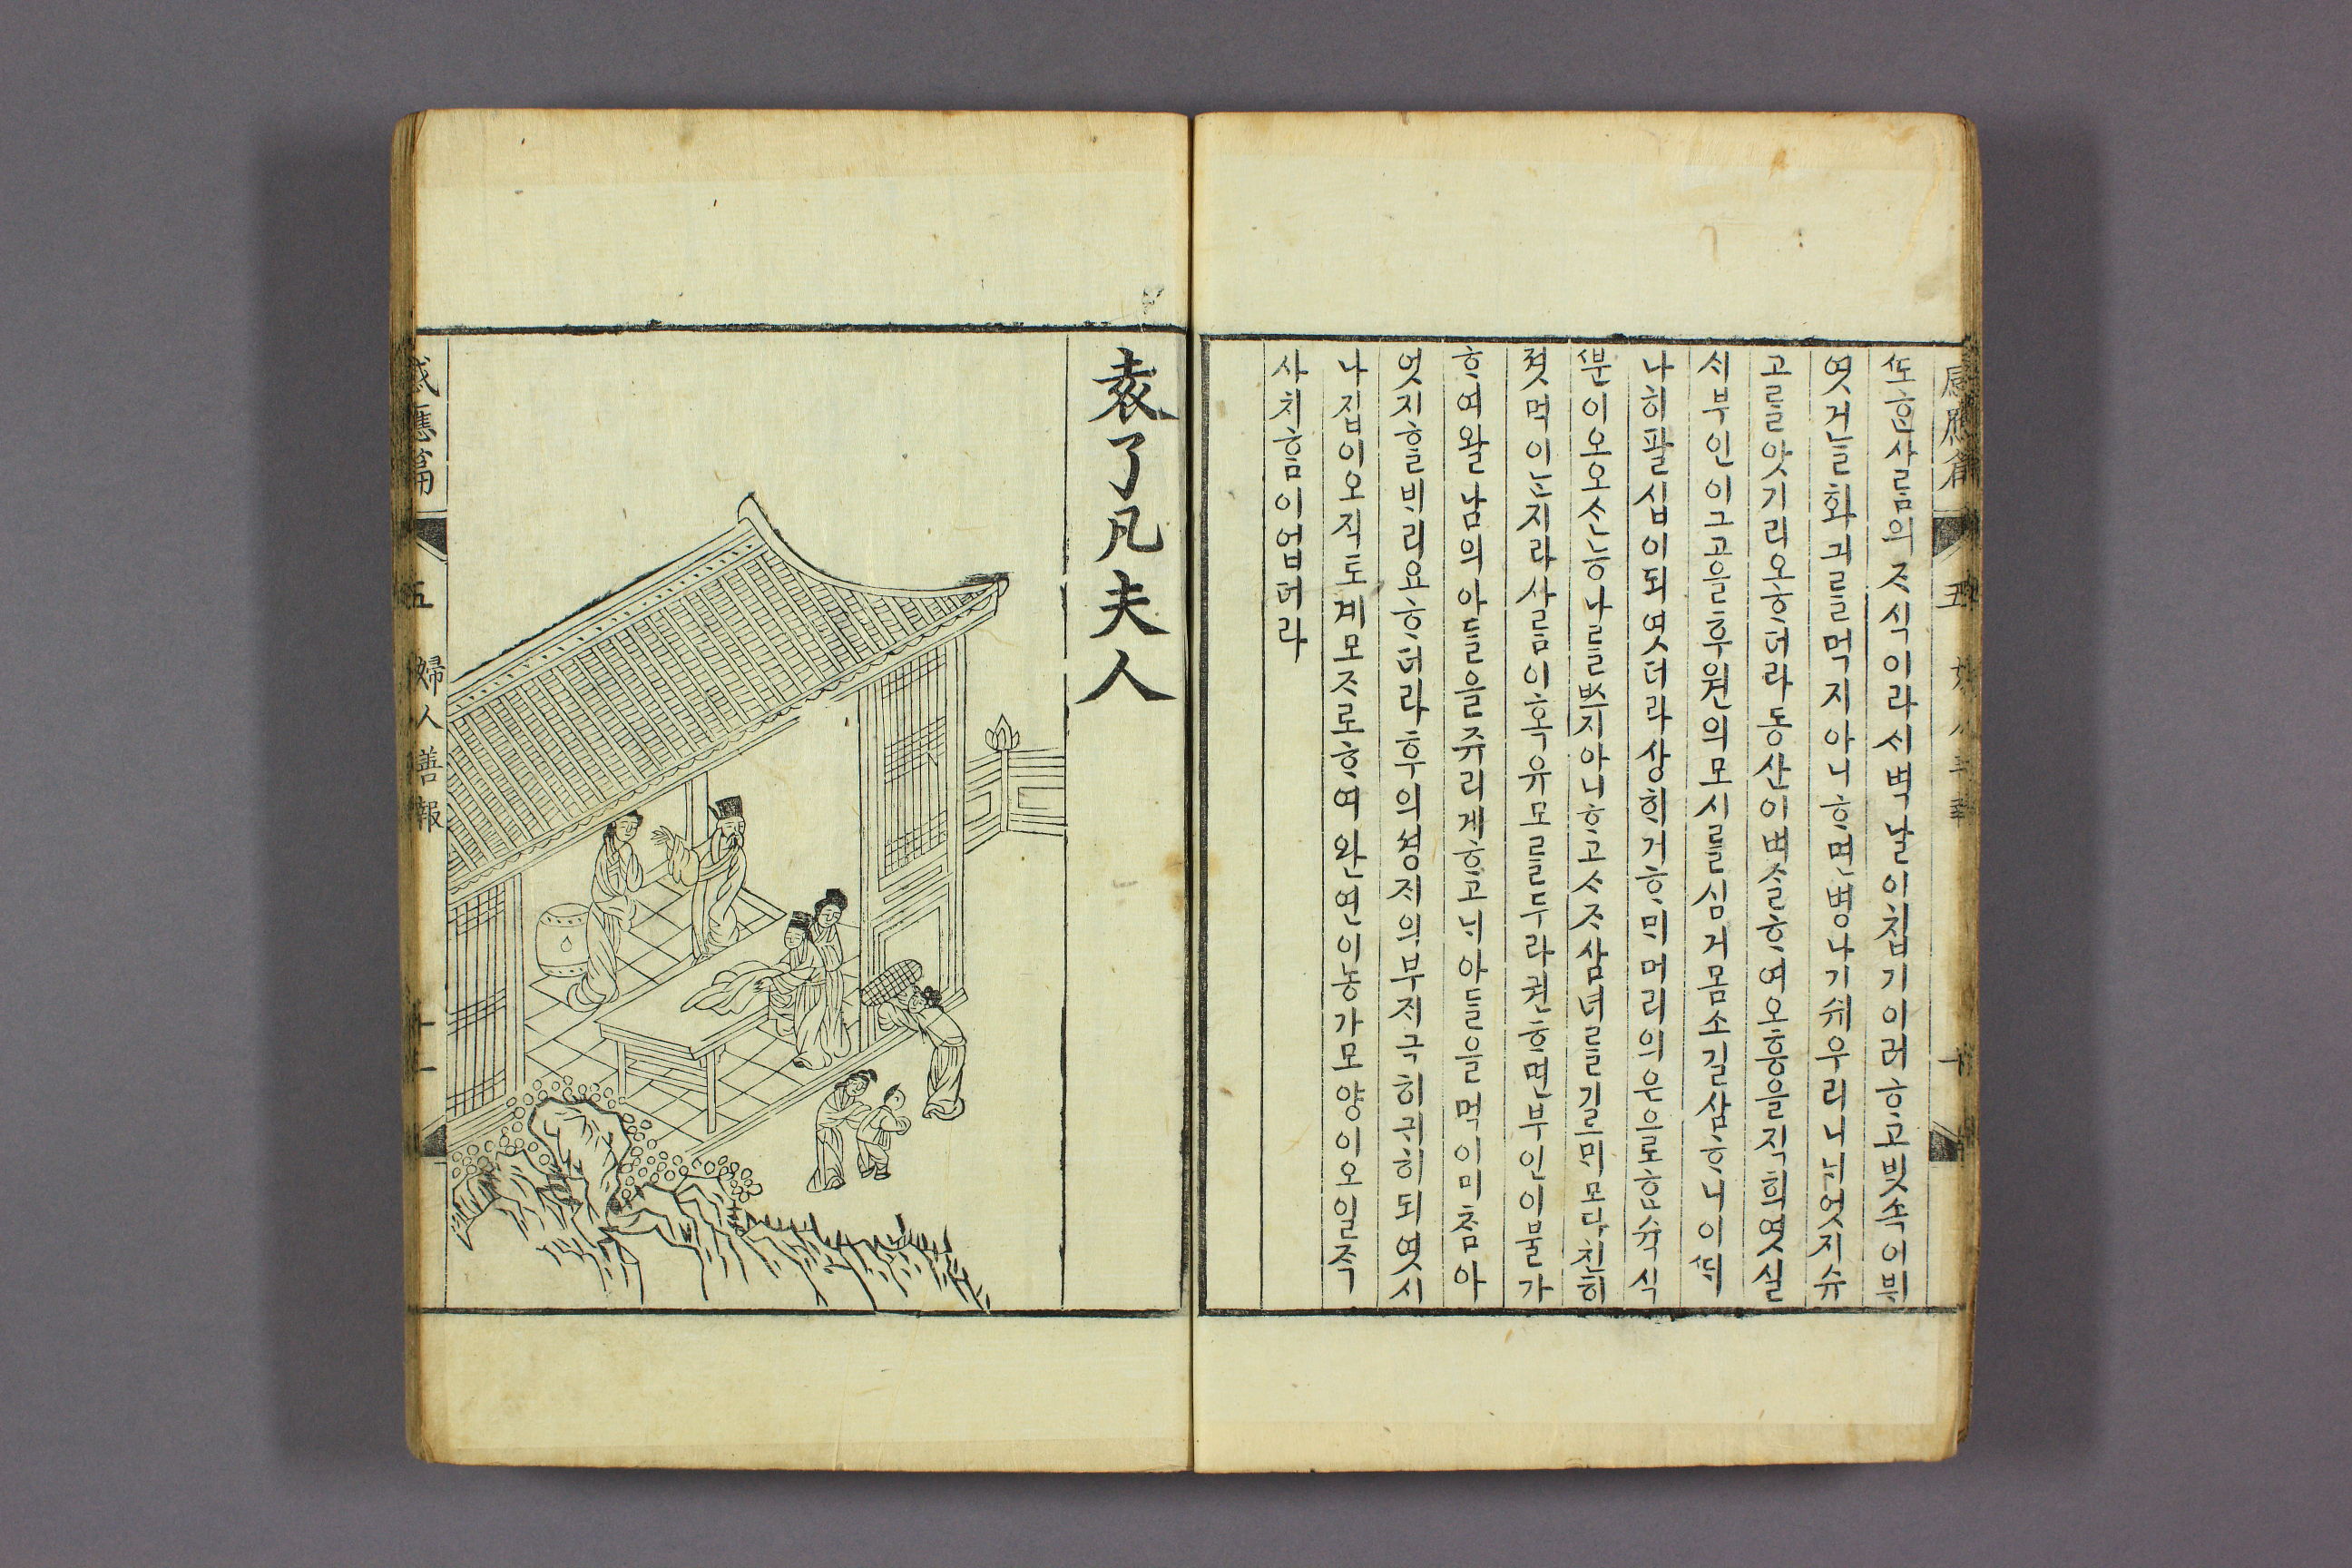 感應篇 五
ᄯᅩᄒᆞᆫ사ᄅᆞᆷ의ᄌᆞ식이라ᄉᆡ벽날이칩기이러ᄒᆞ고ᄇᆡᆺ속이뷔
엿거늘화긔를먹지아니ᄒᆞ면병나기쉬우리니ᄂᆡ엇지슈
고를앗기리오ᄒᆞ더라동산이벼ᄉᆞᆯᄒᆞ여오흥을직희엿실
ᄉᆡ부인이그고을후원의모시를심거몸소길삼ᄒᆞ니이ᄯᅢ
나히팔십이되엿더라상히거ᄒᆞᄆᆡ머리의은으로ᄒᆞᆷ슈식
ᄲᅮᆫ이오오ᄉᆞᆫ능나를ᄡᅳ지아니ᄒᆞ고ᄉᆞᄌᆞ삼녀를길르ᄆᆡ모다친히
졋먹이ᄂᆞᆫ지라사ᄅᆞᆷ이혹유모를두라권ᄒᆞ면부인이물가
ᄒᆞ여왈남의아들을쥬리게ᄒᆞ고ᄂᆡ아들을먹이미ᄎᆞᆷ아
엇지ᄒᆞᆯᄇᆡ리요ᄒᆞ더라후의셩ᄌᆡ의부ᄌᆡ극히귀히되엿시
나집이오직도ᄇᆡ모ᄌᆞ로ᄒᆞ여완연이농가모양이오일즉
사치ᄒᆞᆷ이업더라
袁了凡夫人
感應篇 五 婦人善報 十二